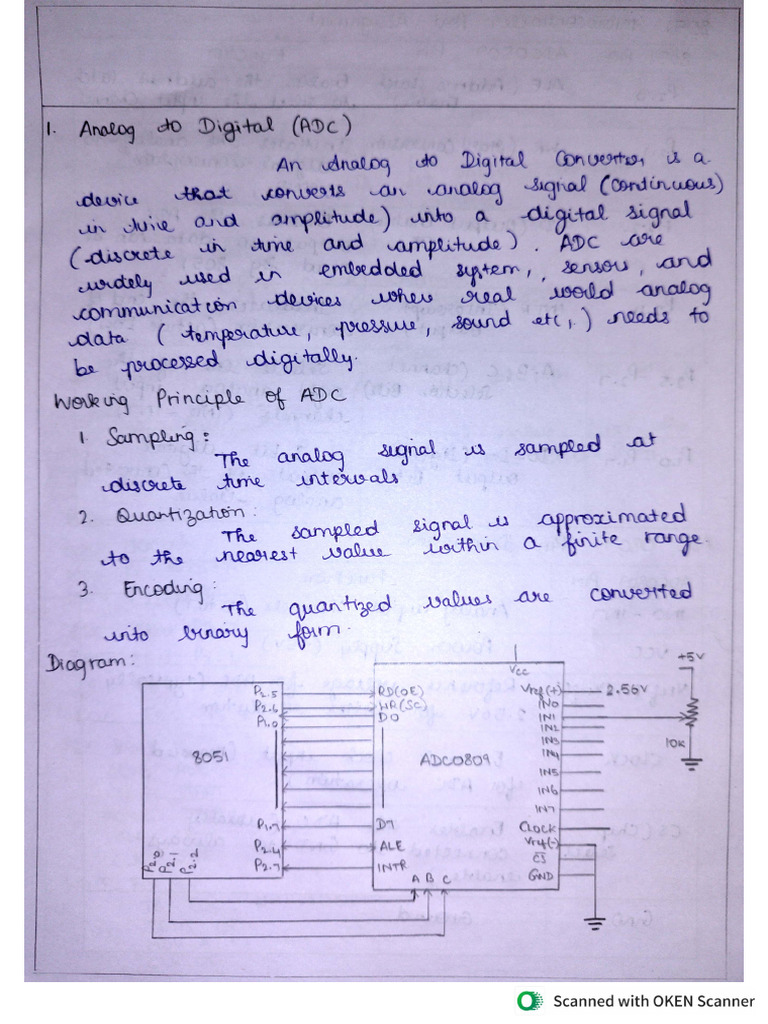 1. Analog to Digital (ADC)
An Analog to Digital Converter is a
device that converts an analog signal (continuous)
in time and amplitude) into a digital signal
(discrete in time and amplitude). ADC are
widely used in embedded system, sensors, and
communication devices when real world analog
data (temperature, pressure, sound etc,.) needs to
be processed digitally.
Working Principle of ADC
1. Sampling:
The analog signal is sampled at
discrete time intervals
2. Quantization:
The sampled signal is approximated
to the nearest value within a finite range.
3. Encoding:
The quantized values are converted
into binary form.
Diagram:
8051
P2.5
P2.6
P1.0
P1.7
P2.4
P2.7
P2.0
P2.1
P2.2
ADC0809
RD(OE)
WR(SC)
D0
D7
ALE
INTR
A B C
Vcc
Vref(+)
2.56V
+5V
IN0
IN1
IN2
IN3
IN4
IN5
IN6
IN7
10K
Clock
Vrf(-)
CS
GND
Scanned with OKEN Scanner